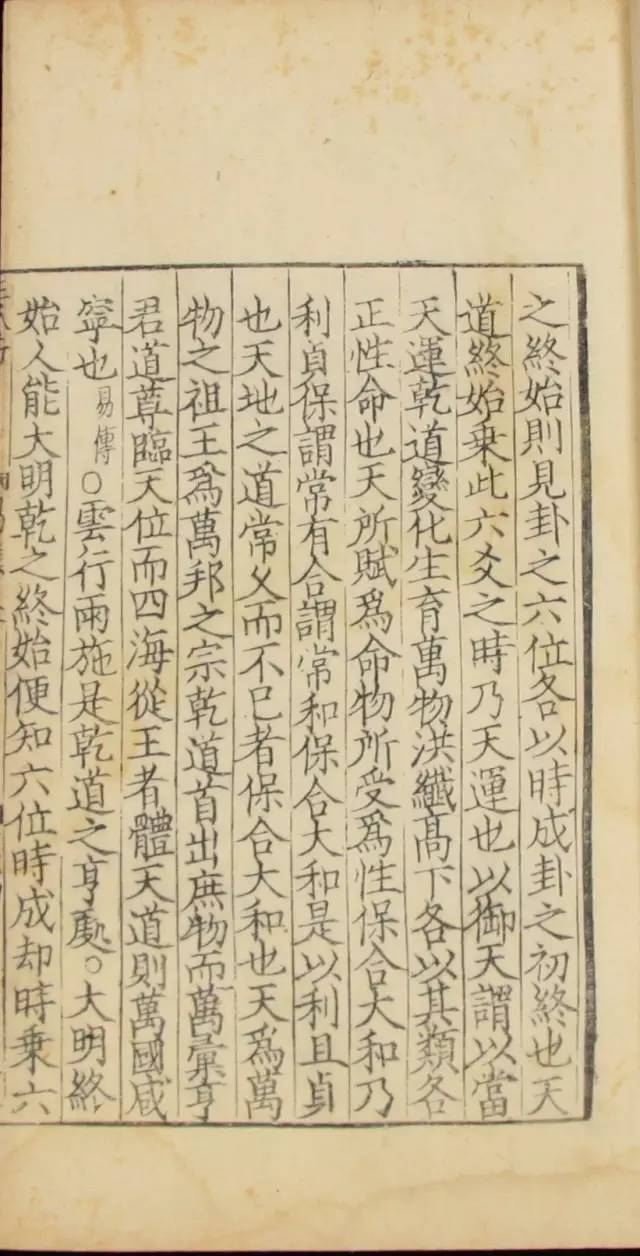 之終始則見卦之六位各以時成卦之初終也天
道終始乗此六爻之時乃天運也以御天謂以當
天運乾道變化生育萬物洪纖髙下各以其類各
正性命也天所賦爲命物所受爲性保合大和乃
利貞保謂常有合謂常和保合大和是以利且貞
也天地之道常乆而不已者保合大和也天爲萬
物之祖王爲萬邦之宗乾道首出庶物而萬彙亨
君道尊臨天位而四海從王者體天道則萬國咸
寜也易傳○雲行雨施是乾道之亨處○大明終
始人能大明乾之終始便知六位時成却時乗六